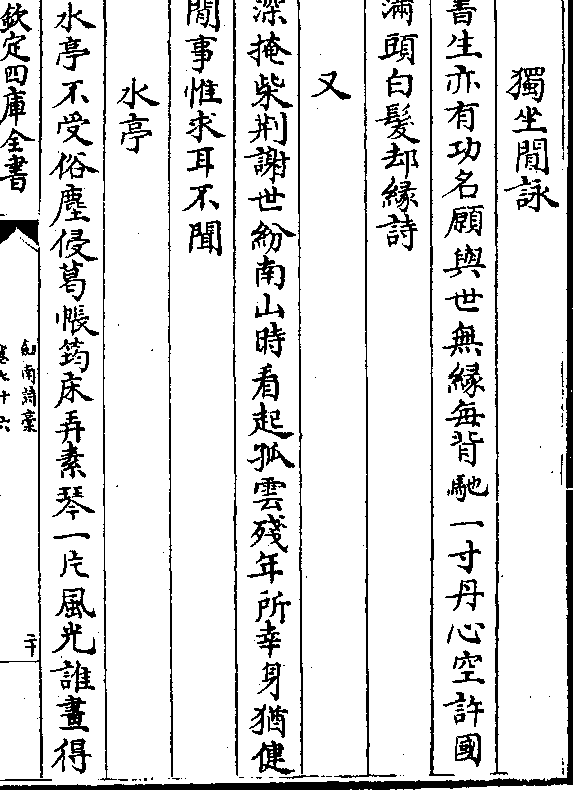 獨坐閒詠
書生亦有功名願與世無緣每背馳一寸丹心空許國
滿頭白髮却緣詩
又
深掩柴荆謝世紛南山時看起孤雲殘年所幸身猶健
閒事惟求耳不聞
水亭
水亭不受俗塵侵葛帳筠床弄素琴一片風光誰畫得
欽定四庫全書
劍南詩槀
卷七十六
二十